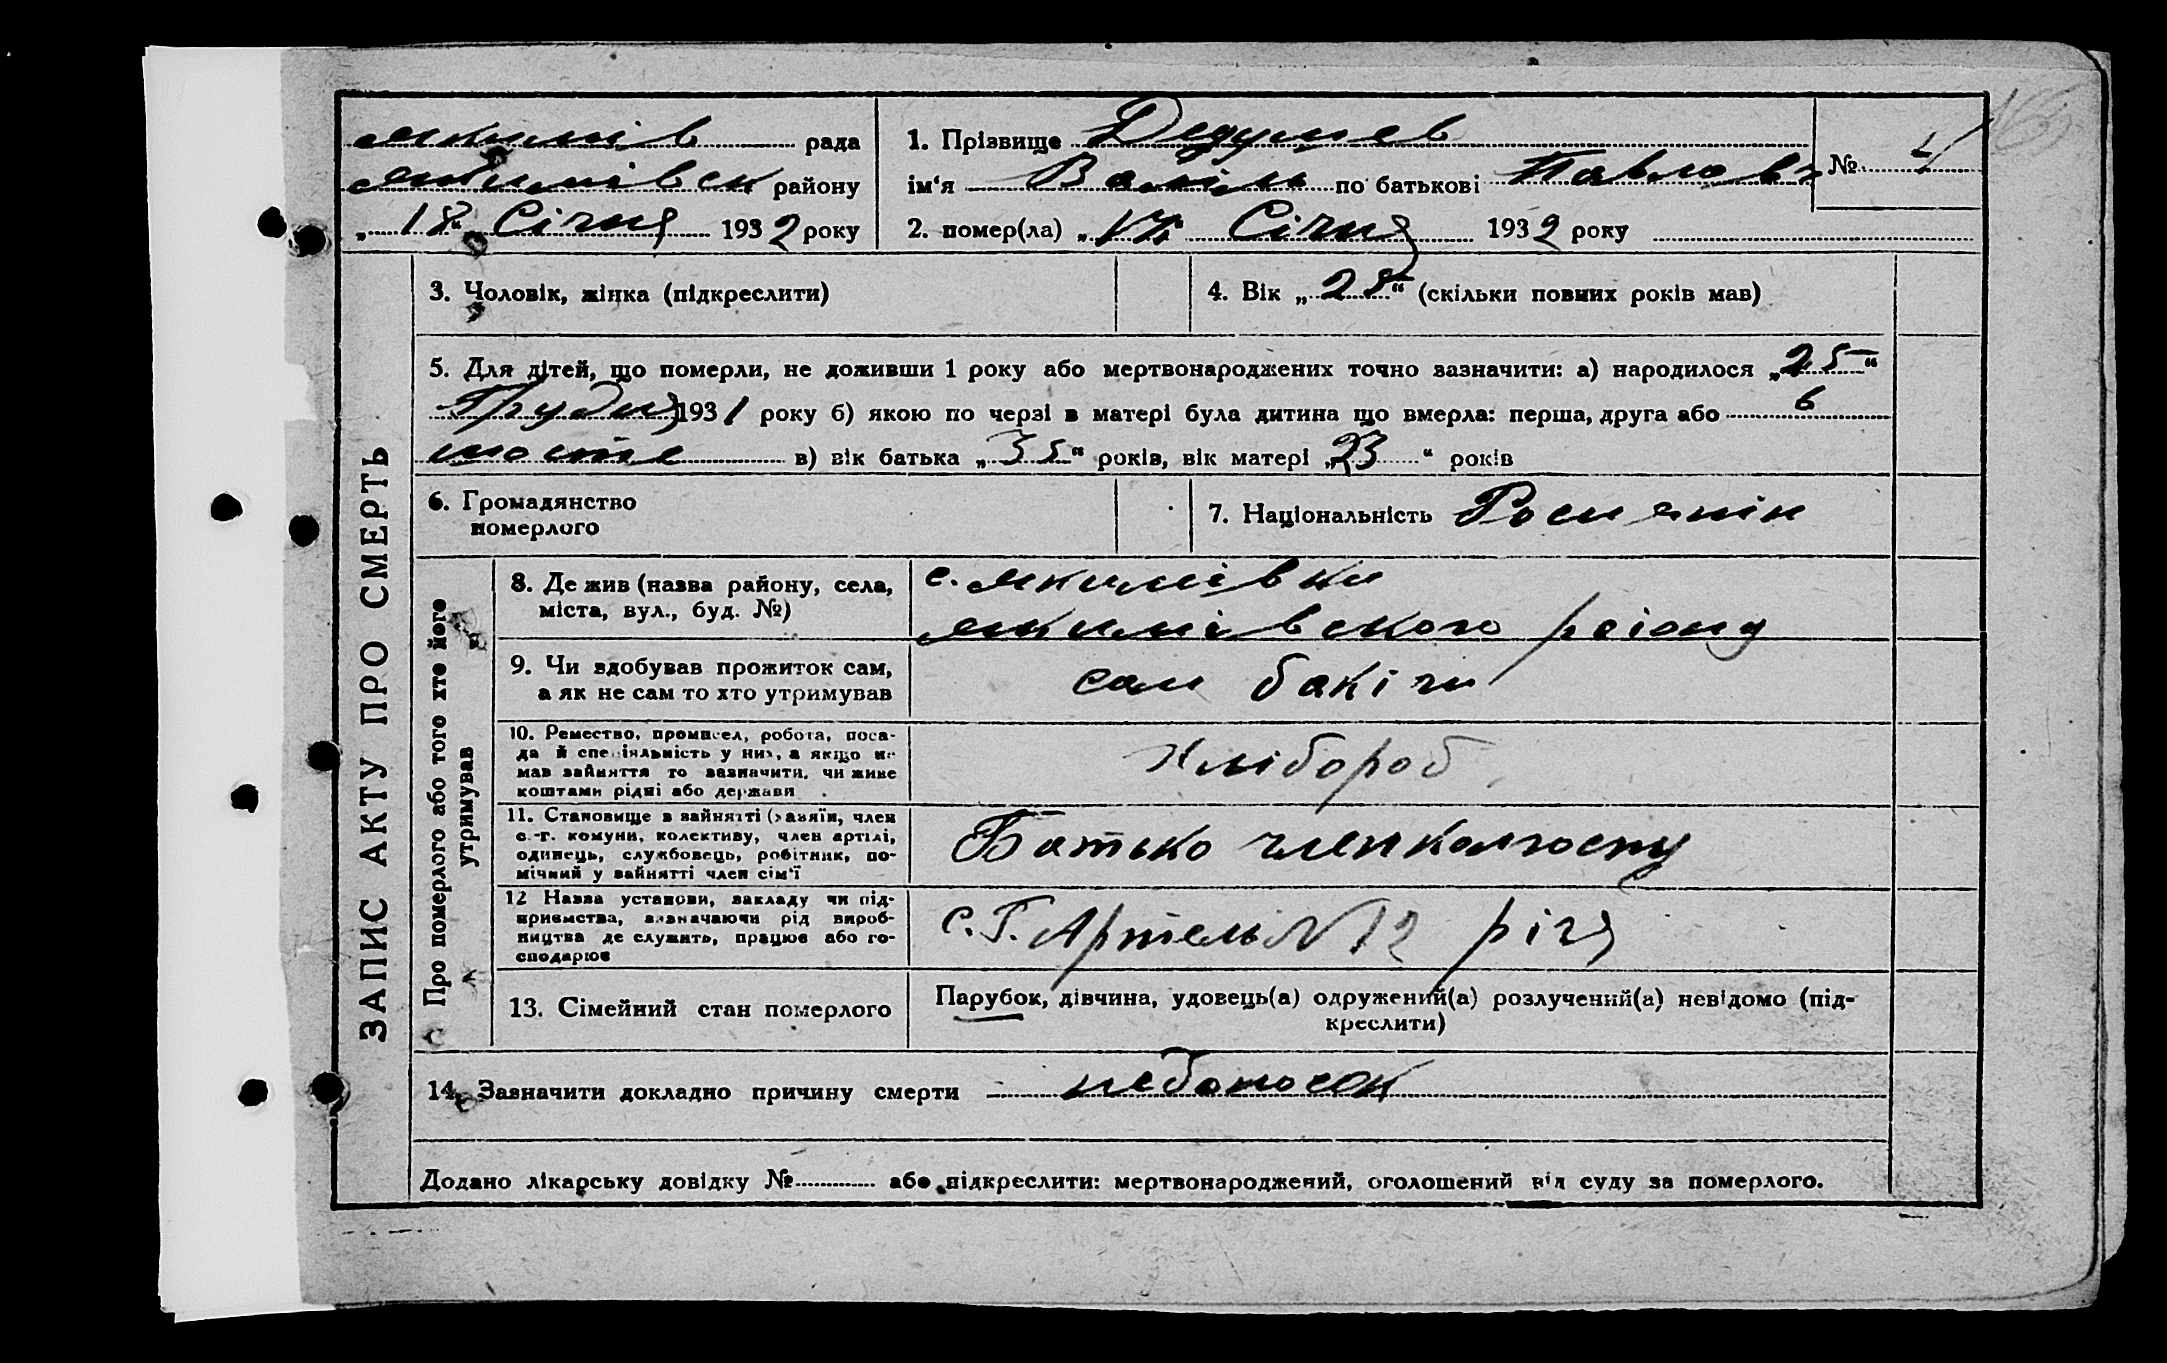 Якимів рада
Якимівськ району
„ 18 “ Січня 1932 року
1. Прізвище
ім‘я Василь по батькові Павлов
№ 4
2. помер(ла) „ 17 “ Січня 1932 року
ЗАПИС АКТУ ПРО СМЕРТЬ
3. Чоловік, жінка (підкреслити)
4. Вік „ “ (скільки повних років мав)
5. Для дітей, що померли, не доживши 1 року або мертвонароджених точно зазначити: а) народилося „ 25 “
Грудня 1931 року б) якою по черзі в матері була дитина що вмерла: перша, друга або 6
шосте в) вік батька „ 35 “ років, вік матері „ 33 “ років
6. Громадянство
померлого
7. Національність Росиянін
Про померлого або того хто його
утримував
8. Де жив (назва району, села,
міста, вул., буд. №)
с. Якимівки
Якимівского району
9. Чи вдобував прожиток сам,
а як не сам то хто утримував
сам
10. Ремество, промисел, робота, поса-
да й спеціяльність у них, а якщо не
мав зайняття то зазначити, чи живе
коштами рідні або держави
Хлібороб
11. Становище в зайнятті (хазяїн, член
с.-г. комуни, колективу, член артілі,
одинець, службовець, робітник, по-
мічний у зайнятті член сім‘ї
Батько член колгоспу
12 Назва установи, закладу чи під-
приємства, зазначаючи рід вироб-
ництва де служить, працює або го-
сподарює
С.Г. Артель N 12
13. Сімейний стан померлого
Парубок, дівчина, удовець(а) одружений(а) розлучений(а) невідомо (під-
креслити)
14. Зазначити докладно причину смерти
Додано лікарську довідку № або підкреслити: мертвонароджений, оголошений від суду за померлого.